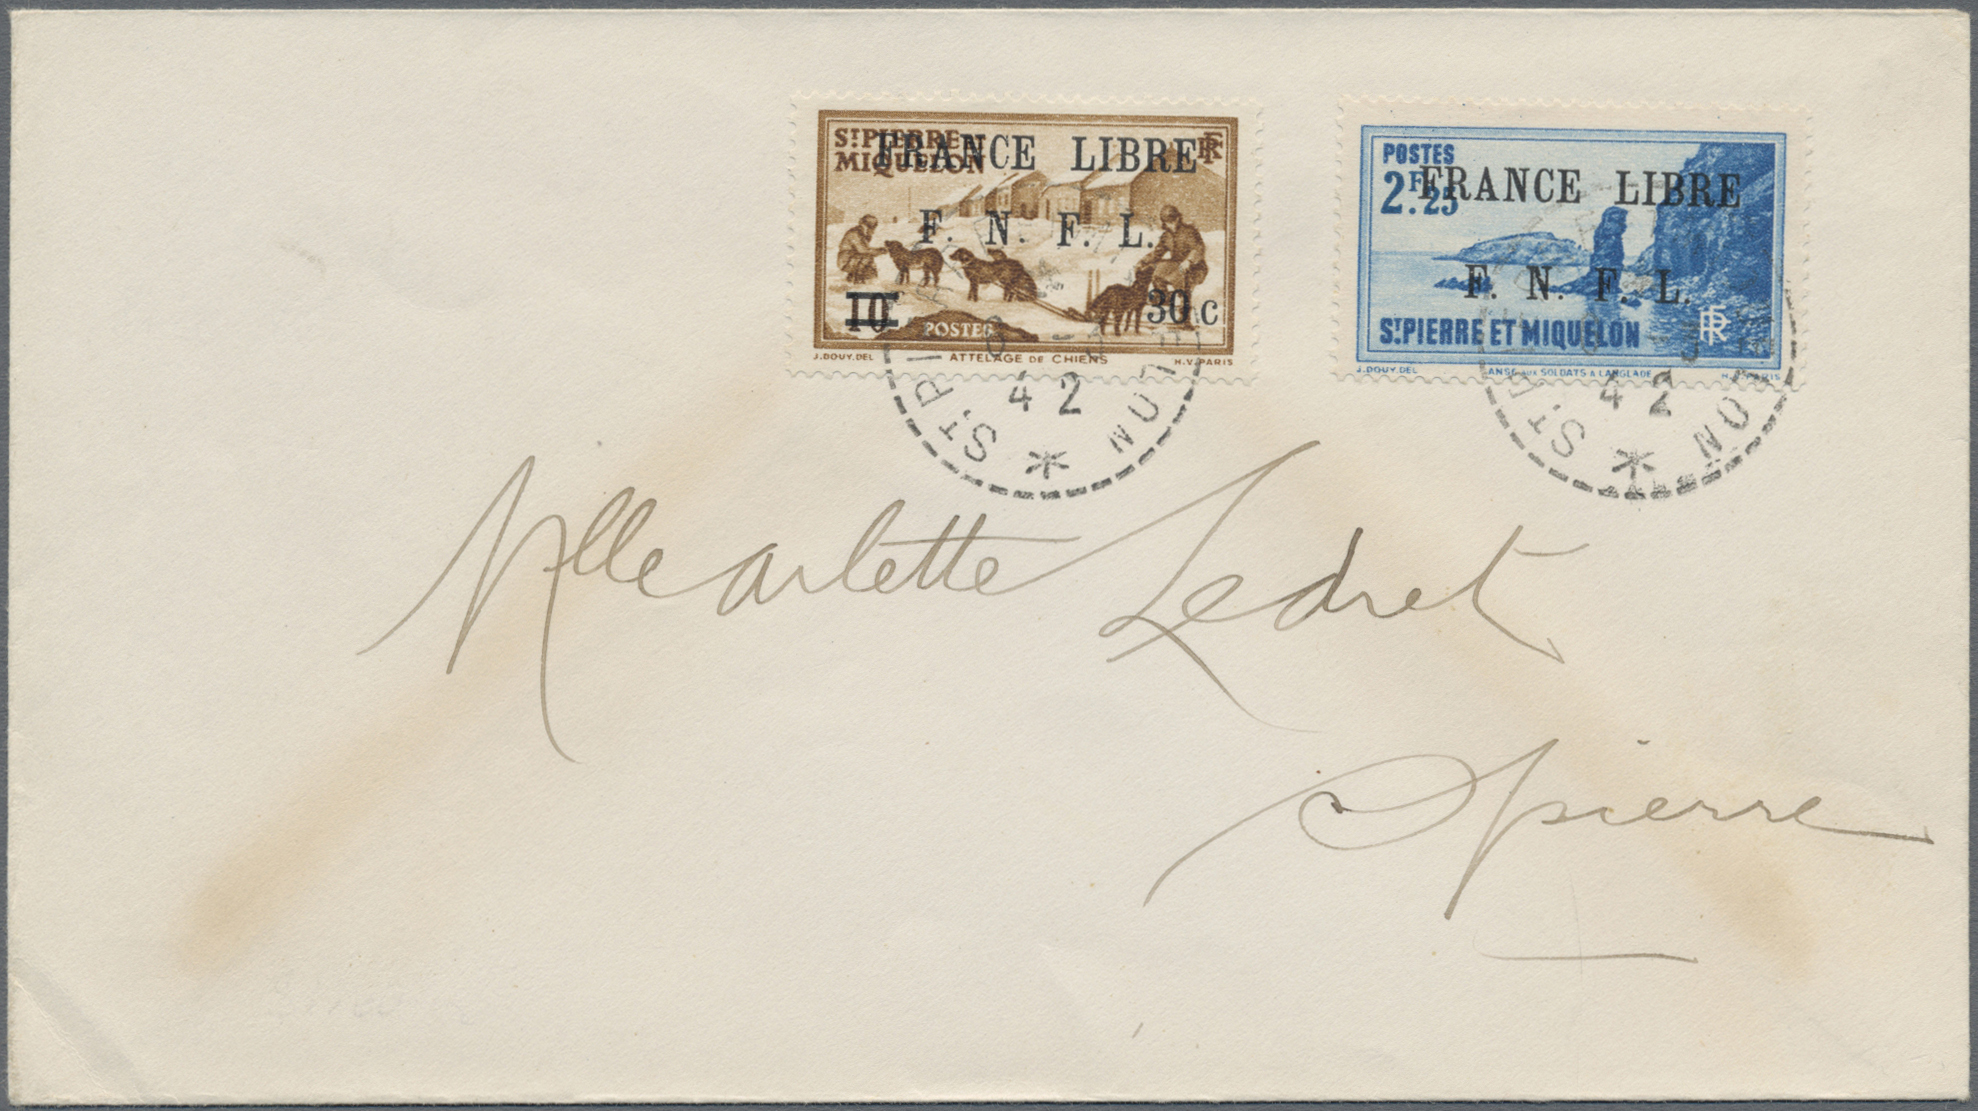 ST PIERRE
MIQUELON
RF
FRANCE LIBRE
F. N. F. L.
10
30 c
POSTES
J.DOUY.DEL ATTELAGE DE CHIENS H.V. PARIS
POSTES
2F.25
FRANCE LIBRE
F. N. F. L.
ST PIERRE ET MIQUELON
RF
J.DOUY.DEL ANSE AUX SOLDATS A LANGLADE PARIS
ST. PI ELON
42
ST. PI LON
42
Mlle Arlette Ledret
St Pierre